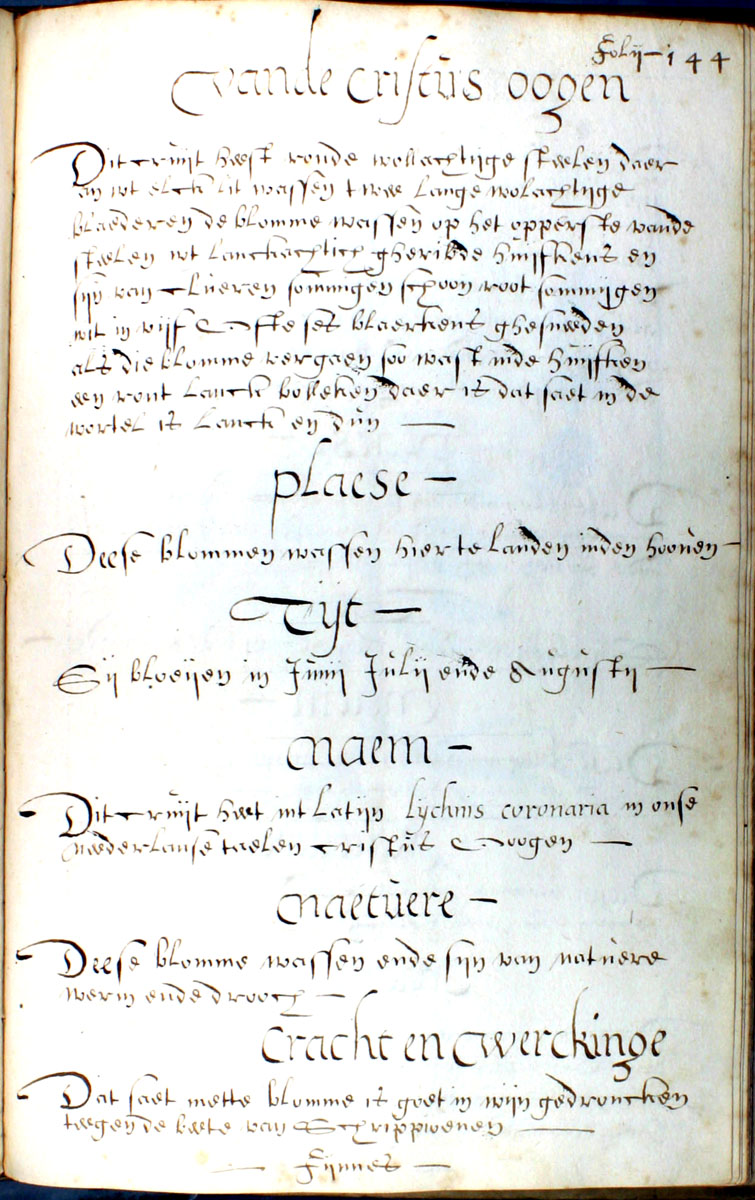 Folij - 144
Vande Cristus oogen
Dit cruijt heeft ronde wollachtijge steelen daer
an wt elck lit wassen twee lange wolachtijge
blaederen de blomme wassen op het opperste vande
steelen wt lanckachtich gheribde huijfkens en
sijn van clueren sommigen schoon root sommijgen
wit in vijf ofte ses blaerkens ghesneeden
als die blomme vergaen soo wast inde huijfken
een ront lanck bolleken daer is dat saet in de
wortel is lanck en dun —
plaese —
Deese blommen wassen hier te landen inden hooven —
Tijt —
Sij bloeijen in Junij Julij ende Augustij —
Naem —
Dit cruijt heet int Latijn lychnis coronaria in onse
neederlanse taelen cristus oogen —
Naetuere —
Deese blomme wassen ende sijn van natuere
werm ende drooch —
Cracht en Werckinge
Dat saet mette blomme is goet in wijn gedroncken
teegen de beete van Schrippioenen —
— Fijnnes —